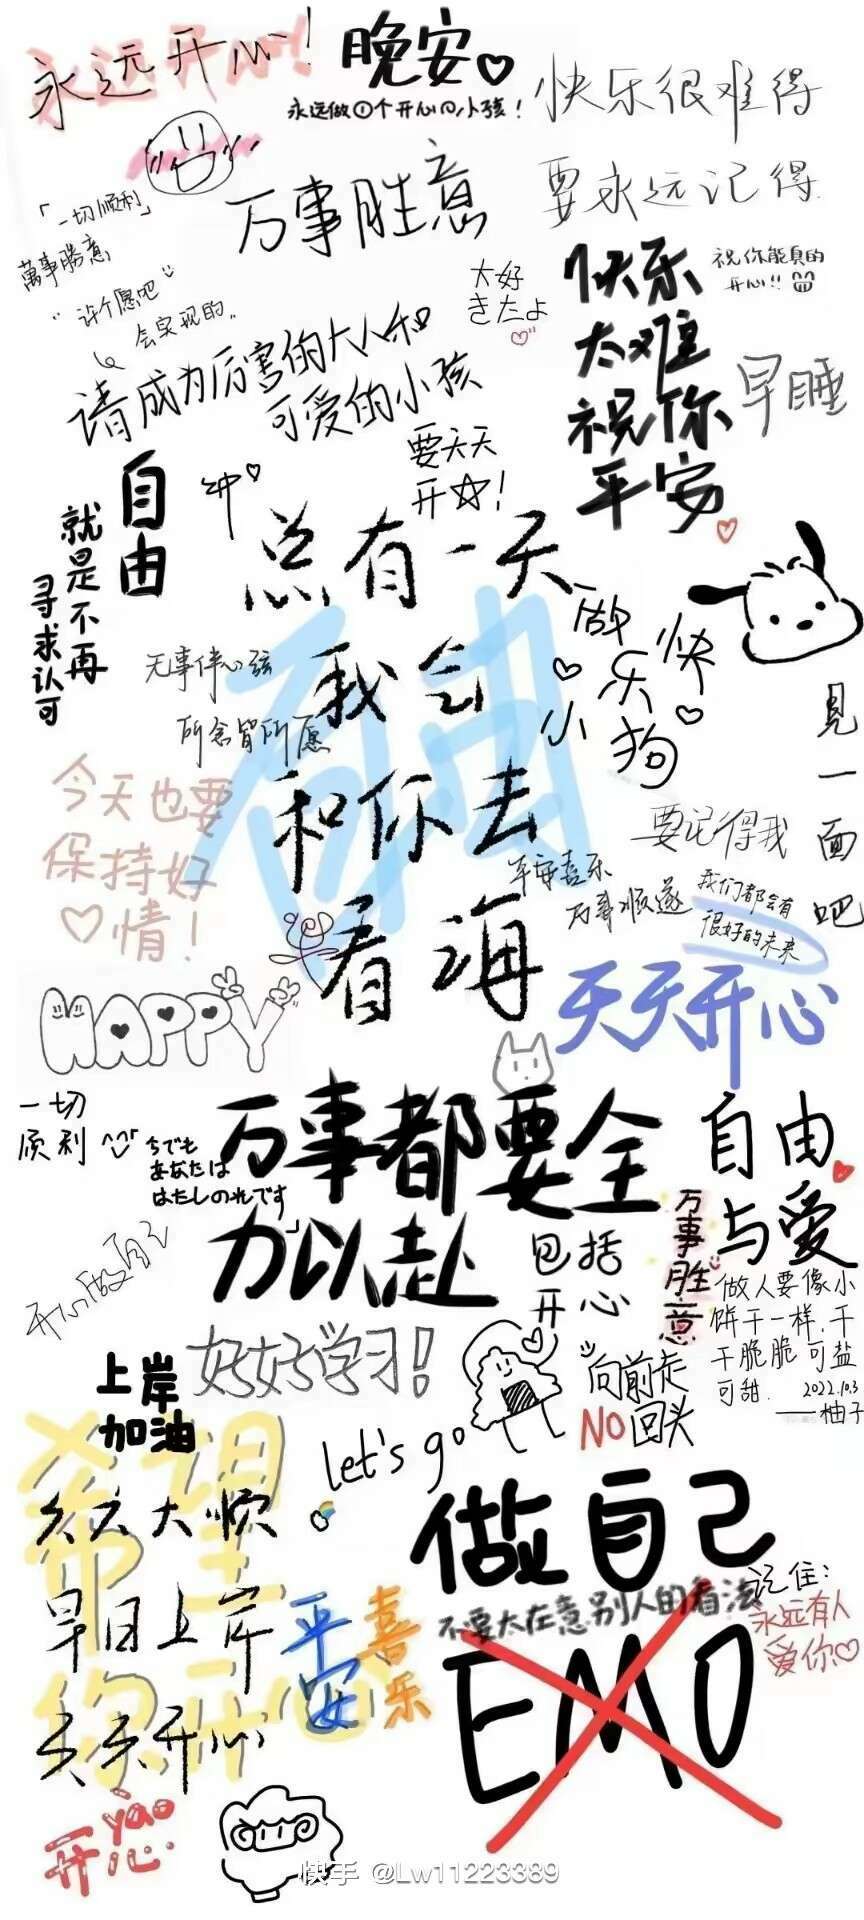 永远开心!
晚安
永远做1个开心の小孩!
快乐很难得
要永远记得
万事胜意
「一切顺利」
萬事勝意
"许个愿吧
会实现的"
大好
きだよ
快乐
太难
祝你
平安
祝你能真的
开心!!
早睡
请成为厉害的大人和
可爱的小孩
要天天
开☆!
自由
就是不再
寻求认可
冲
总有一天
我会
和你去
看海
自由
做快
乐
小狗
无事伴心弦
所念皆所愿
见一面吧
今天也要
保持好
♡情!
要记得我
平安喜乐
万事顺遂
我们都会有
很好的未来
天天开心
HAPPY
一切
顺利
ちでも
あなたは
はたしのれです
万事都要全
力以赴
包括
开心
自由
与爱
万事胜意
开心做自己
好好学习!
做人要像小
饼干一样,干
干脆脆可盐
可甜.
2022.10.3
——柚子
向前走
NO回头
上岸
加油
let's go
希望
你开心
久久大顺
早日上岸
天天开心
平安
喜乐
做自己
不要太在意别人的看法
EMO
记住:
永远有人
爱你♡
yào
开心
快手 @Lw11223389